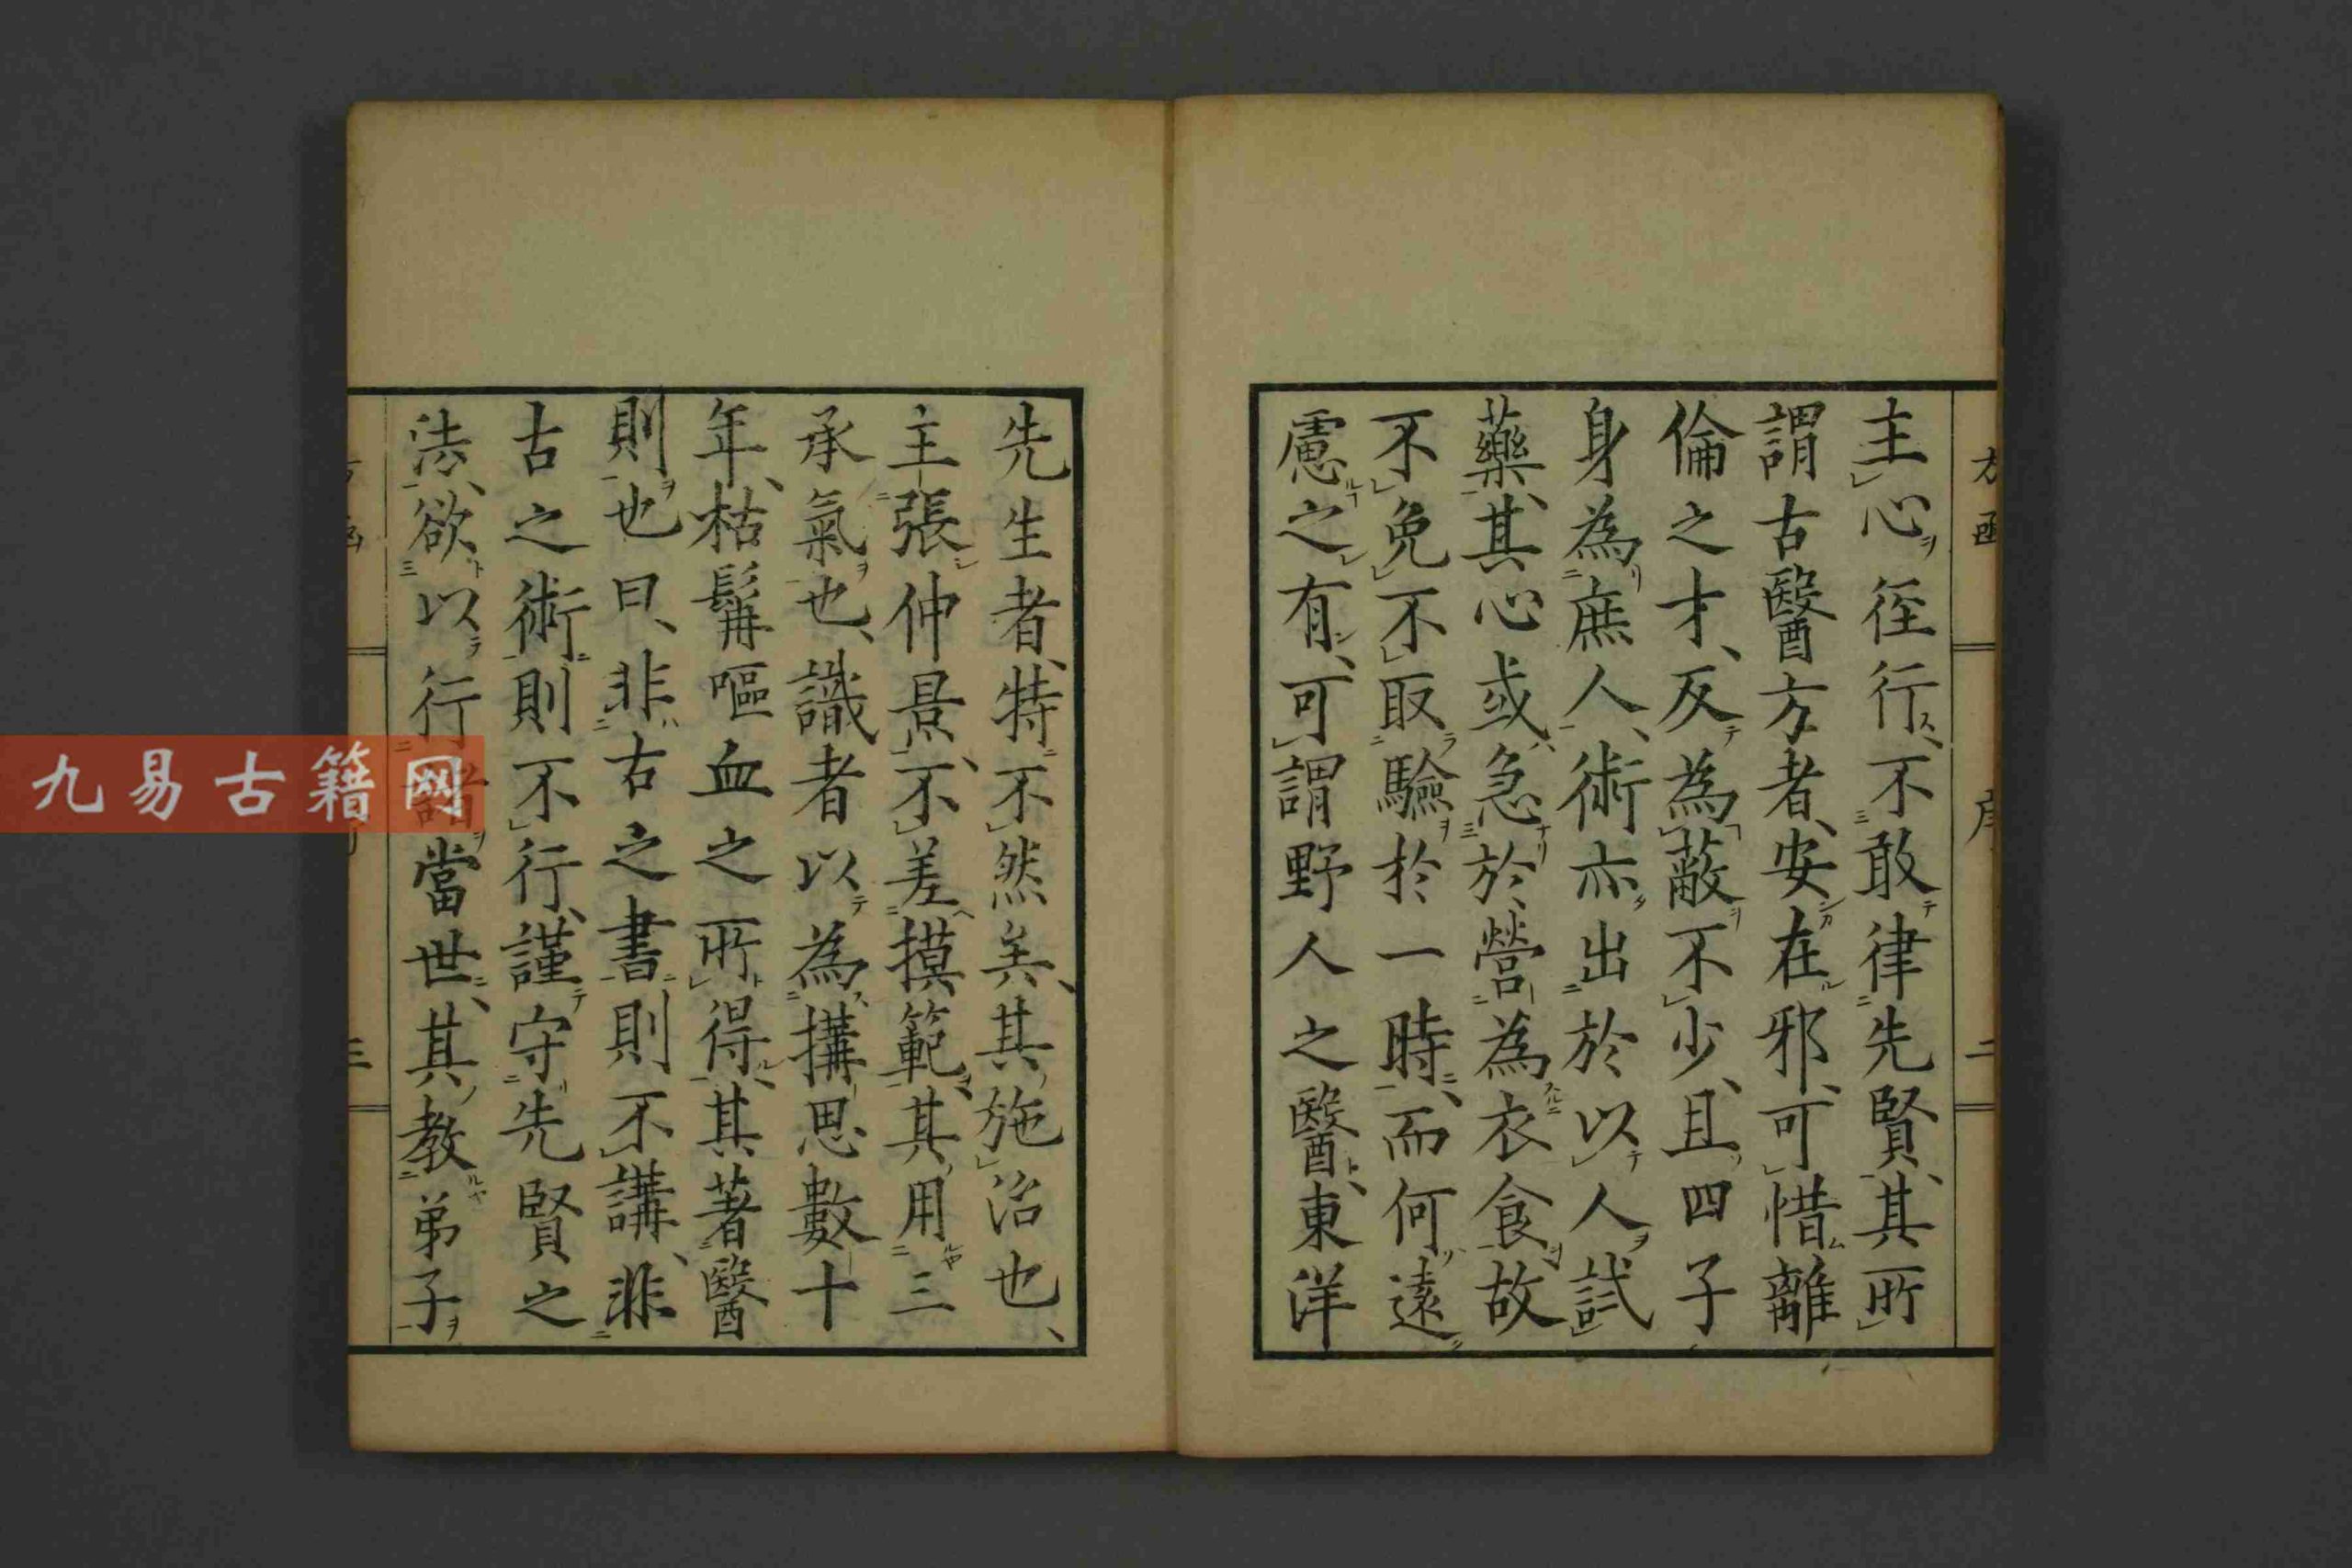 主心徑行、不敢律先賢、其所
謂古醫方者、安在邪、可惜離
倫之才、反為蔽不少、且四子
身為庶人、術亦出於以人試
藥、其心或急於營為衣食故
不免不取驗於一時、而何遠
慮之有、可謂野人之醫、東洋
先生者、特不然矣、其施治也、
主張仲景、不差摸範、其用三
承氣也、識者以為搆思數十
年、枯髯嘔血之所得、其著醫
則也曰、非古之書則不講、非
古之術則不行、謹守先賢之
法、欲以行諸當世、其教弟子
九易古籍网